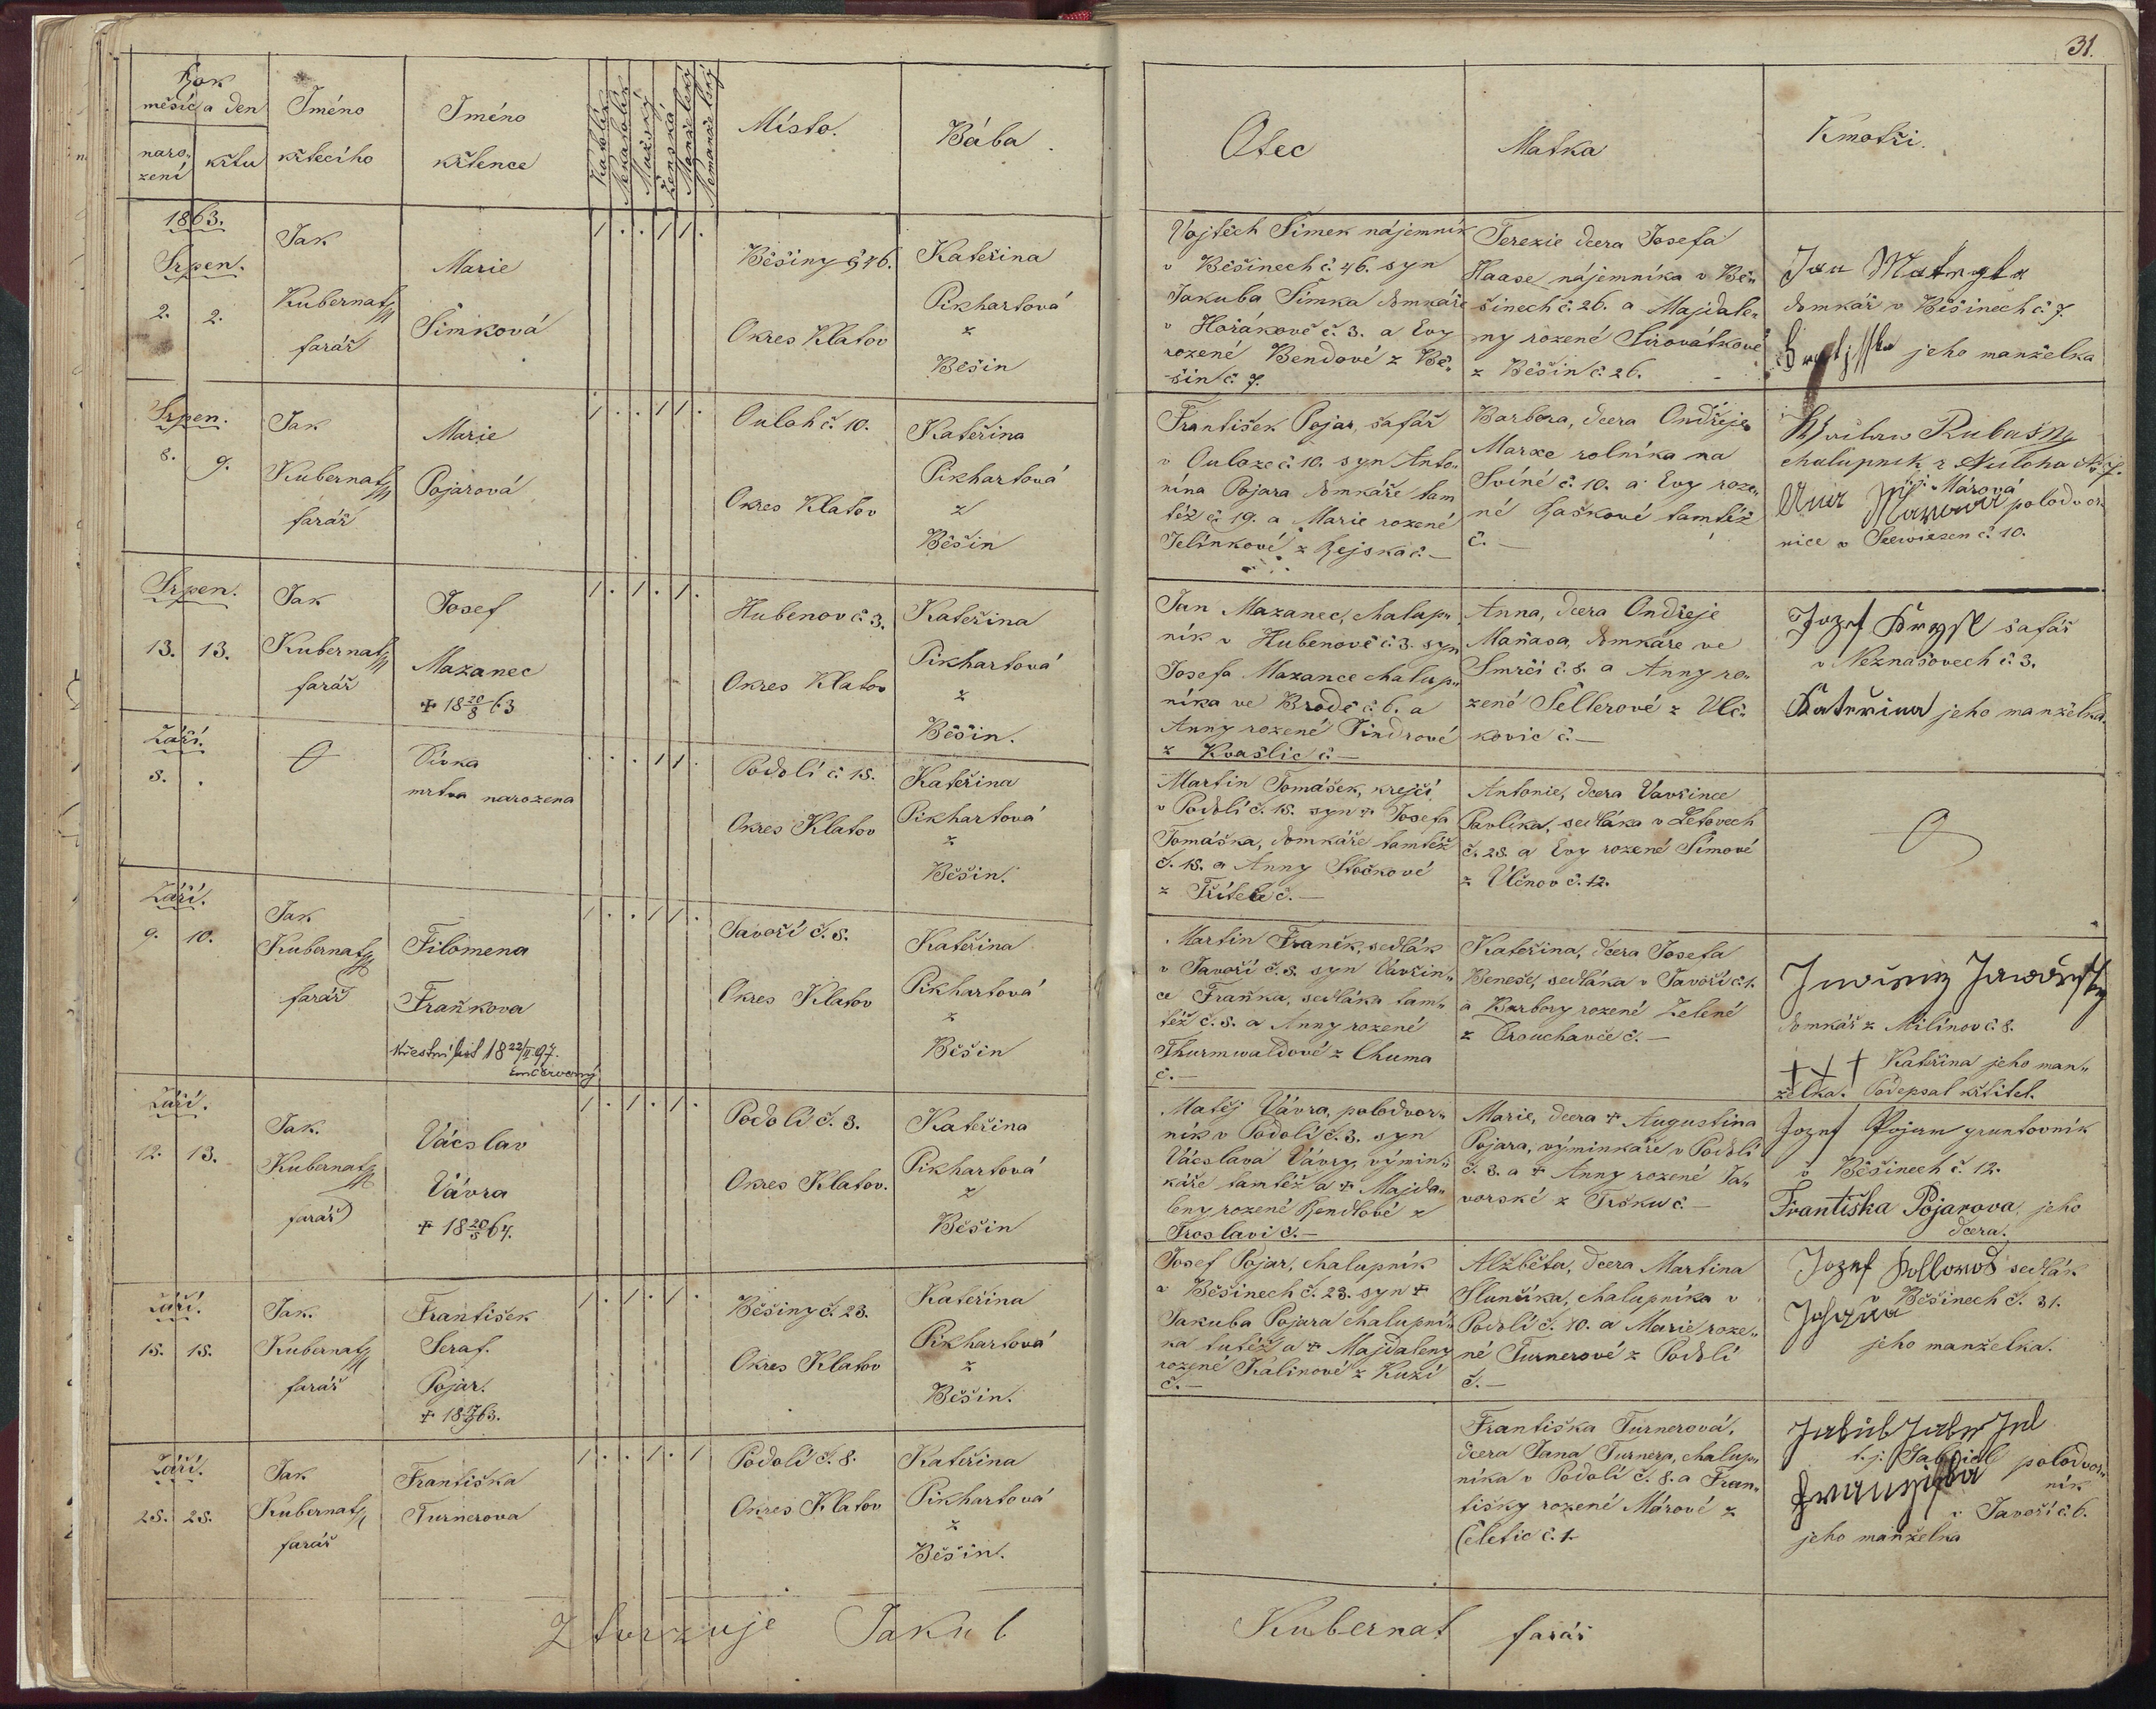 31.
Rok
měsíc a den
naro-
zení
křtu
Jméno
křtecího
Jméno
křtence
Katolík
Nekatolík
Mužský
Ženská
Manželský
Nemanželský
Místo.
Bába.
Otec
Matka
Kmotři.
1863.
Srpen.
2. 2.
Jak
Kubernat
farář
Marie
Šimková
1 . . 1 1 .
Běšiny č 46.
Okres Klatov
Kateřina
Pikhartová
z
Běšin
Vojtěch Šimek nájemník
v Běšinech č. 46. syn
Jakuba Šimka domkáře
v Hořákově č. 3. a Evy
rozené Bendové z Bě-
šin č. 7.
Terezie dcera Josefa
Haase nájemníka v Bě-
šinech č. 26. a Majdale-
ny rozené Sirovátkové
z Běšin č. 26.
Jan
domkář v Běšinech č. 7.
jeho manželka
Srpen.
8. 9.
Jak
Kubernat
farář
Marie
Pojarová
1 . . 1 1 .
Ouloh č. 10.
Okres Klatov
Kateřina
Pikhartová
z
Běšin
František Pojar, šafář
v Ouloze č. 10. syn Anto-
nína Pojara domkáře tam
též č. 19. a Marie rozené
Jelínkové z Rejska č. —
Barbora, dcera Ondřeje
Marxe rolníka na
Sviné č. 10. a Evy roze-
né Raškové tamtéž
č. —
chalupnik z Auloha No 7.
Márová
polodvor
nice v Seewiesen č. 10.
Srpen.
13. 13.
Jak
Kubernat
farář
Josef
Mazanec
+ 18 20/8 63
1 . 1 . 1 .
Hubenov č 3.
Okres Klatov
Kateřina
Pikhartová
z
Běšin.
Jan Mazanec, chalup-
ník v Hubenově č. 3. syn
Josefa Mazance chalup-
níka ve Brodě č. 6. a
Anny rozené Šindrové
z Kvašlic č. —
Anna, dcera Ondřeje
Maňasa, domkáře ve
Smrčí č. 8. a Anny ro-
zené Šellerové z Vlč-
kovic č. —
Jozef šafář
v Neznašovech č. 3.
Kateřina jeho manželka.
Září.
8. .
Dívka
mrtva narozena
. . . 1 1 .
Podolí č. 18.
Okres Klatov
Kateřina
Pikhartová
z
Běšin.
Martin Tomášek, krejčí
v Podolí č. 18. syn + Josefa
Tomáška, domkáře tamtéž
č. 18. a Anny Stočkové
z Třítele č. —
Antonie, dcera Vavřince
Pavlíka, sedláka v Letovech
č. 28. a Evy rozené Šímové
z Úlčnov č. 12.
Září.
9. 10.
Jak
Kubernat
farář
Filomena
Fraňkova
křestní list 18 22/II 97.
1 . . 1 1 .
Javoří č. 8.
Okres Klatov
Kateřina
Pikhartová
z
Běšin
Martin Franěk, sedlák
v Javoří č. 8. syn Vavřin-
ce Fraňka, sedláka tam-
též č. 8. a Anny rozené
Thurmwaldové z Chuma
č. —
Kateřina, dcera Josefa
Beneše, sedláka v Javoří č. 1.
a Barbory rozené Zelené
z Drouhavče č. —
domkář z Milínov č. 8.
+ + + Kateřina jeho man-
želka. Podepsal křtitel.
Září.
12. 13.
Jak.
Kubernat
farář
Vácslav
Vávra
+ 18 20/5 64.
1 . 1 . 1 .
Podolí č. 3.
Okres Klatov.
Kateřina
Pikhartová
z
Běšin
Matěj Vávra, polodvor-
ník v Podolí č. 3. syn
Vácslava Vávry, výmin-
káře tamtéž a + Majda-
leny rozené Rendlové z
Froslavi č. —
Marie, dcera + Augustina
Pojara, výminkáře v Podolí
č. 8. a + Anny rozené Ja-
vorské z Tršku č. —
Jozef Pojar gruntovník
v Běšinech č. 12.
Františka Pojarova, jeho
dcera.
Září.
18. 18.
Jak.
Kubernat
farář
František
Seraf.
Pojar.
1 . 1 . 1 .
Běšiny č. 23.
Okres Klatov
Kateřina
Pikhartová
z
Běšin.
Josef Pojar, chalupník
v Běšinech č. 23. syn +
Jakuba Pojara chalupní-
ka tutéž a + Majdaleny
rozené Kalinové z Kuzí
č. —
Alžběta, dcera Martina
Slunčíka, chalupníka v
Podolí č. 10. a Marie roze-
né Turnerové z Podolí
č. —
Jozef sedlák
v Běšinech č. 31.
jeho manželka.
Září.
28. 28.
Jak
Kubernat
farář
Františka
Turnerova
1 . . 1 . 1
Podolí č. 8.
Okres Klatov
Kateřina
Pikhartová
z
Běšin.
Františka Turnerová,
dcera Jana Turnera, chalup-
níka v Podolí č. 8. a Fran-
tišky rozené Márové z
Čeletic č. 1.
Jakub
t. j. polodvor-
ník
v Javoří č. 6.
jeho manželka
Ztvrzuje Jakub
Kubernat farář